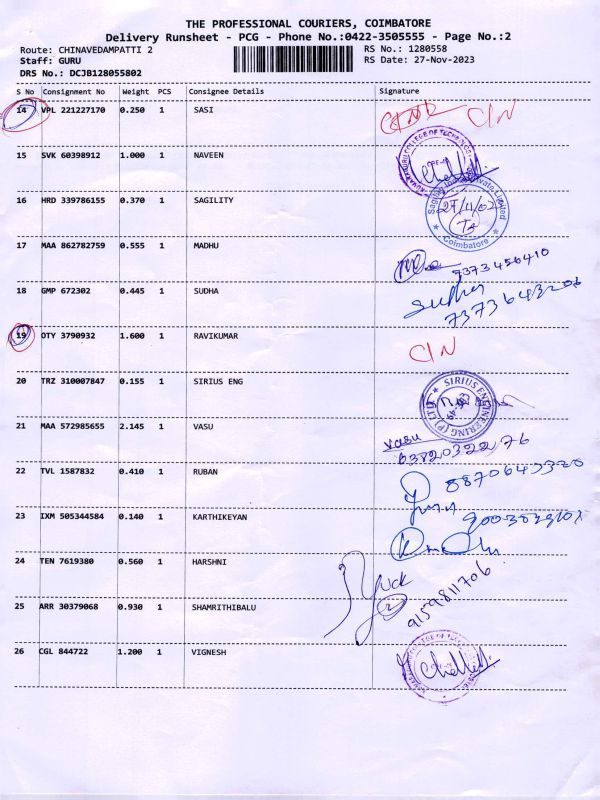 THE PROFESSIONAL COURIERS, COIMBATORE
Delivery Runsheet - PCG - Phone No.:0422-3505555 - Page No.:2
Route: CHINAVEDAMPATTI 2 RS No.: 1280558
Staff: GURU RS Date: 27-Nov-2023
DRS No.: DCJB128055802
S No Consignment No Weight PCS Consignee Details Signature
14 VPL 221227170 0.250 1 SASI C/N
15 SVK 60398912 1.000 1 NAVEEN
16 HRD 339786155 0.370 1 SAGILITY
Coimbatore
17 MAA 862782759 0.555 1 MADHU
7373456410
18 GMP 672302 0.445 1 SUDHA Sudha
7373643206
19 OTY 3790932 1.600 1 RAVIKUMAR C/N
20 TRZ 310007847 0.155 1 SIRIUS ENG
SIRIUS ENGINEERING (P) LTD
21 MAA 572985655 2.145 1 VASU vasu
6382032276
22 TVL 1587832 0.410 1 RUBAN
8870643320
23 IXM 505344584 0.140 1 KARTHIKEYAN
24 TEN 7619380 0.560 1 HARSHNI
25 ARR 30379068 0.930 1 SHAMRITHIBALU
9159811706
26 CGL 844722 1.200 1 VIGNESH